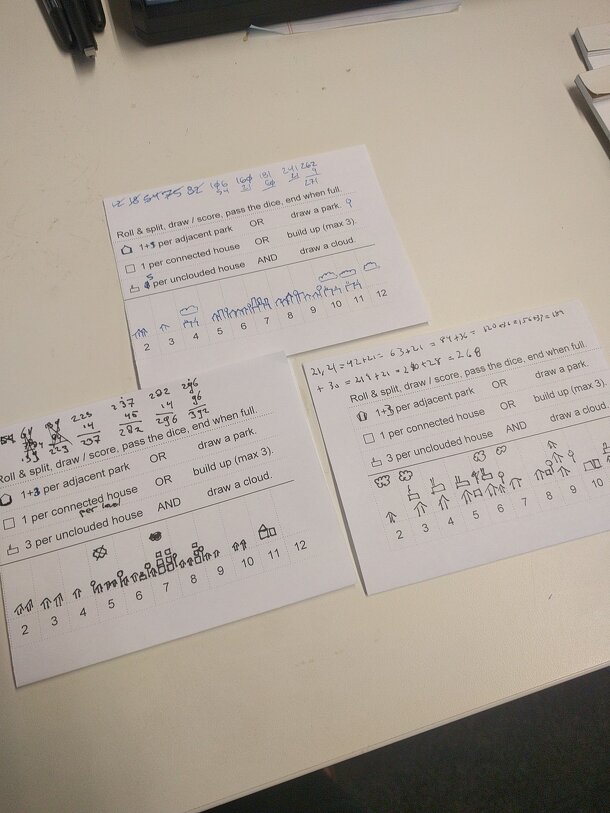 12 18 54 75 82 106 160 181 241 262
54 21 60 21 9
271
Roll & split, draw / score, pass the dice, end when full.
1+3 per adjacent park OR draw a park. 9
1 per connected house OR build up (max 3).
5
per unclouded house AND draw a cloud.
2 3 4 5 6 7 8 9 10 11 12
225 237 282 296
14 45 14 96
237 282 296 392
Roll & split, draw / score, pass the dice, end when full.
1+3 per adjacent park OR draw a park.
1 per connected house OR build up (max 3).
per level
3 per unclouded house AND draw a cloud.
2 3 4 5 6 7 8 9 10 11 12
21, 21 = 42 + 21 = 63 + 21 = 84 + 36 =
= 240 + 28 = 268
Roll & split, draw / score, pass the dice, end when full.
1+3 per adjacent park OR draw a park.
1 per connected house OR build up (max 3).
3 per unclouded house AND draw a cloud.
2 3 4 5 6 7 8 9 10